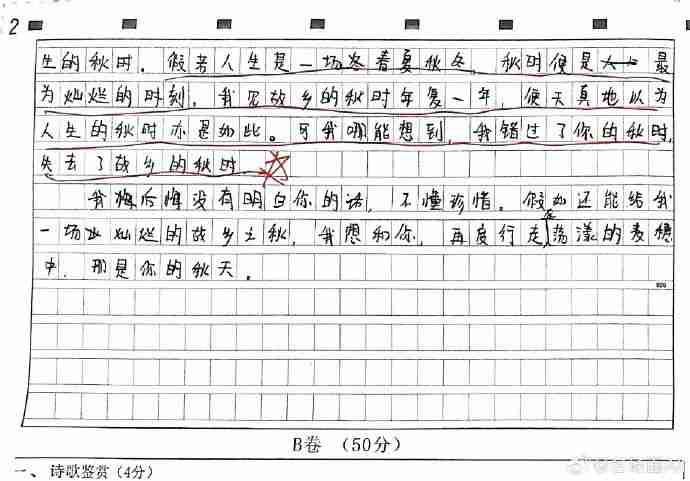 2
生的秋时。假若人生是一场春夏秋冬，秋时便是最
为灿烂的时刻，我见故乡的秋时年复一年，便天真地以为
人生的秋时亦是如此。可我哪能想到，我错过了你的秋时，
失去了故乡的秋时。
我后悔没有明白你的话，不懂珍惜。假如还能给我
一场灿烂的故乡之秋，我想和你，再度行走在荡漾的麦穗
中，那是你的秋天。
B卷 （50分）
一、诗歌鉴赏（4分）